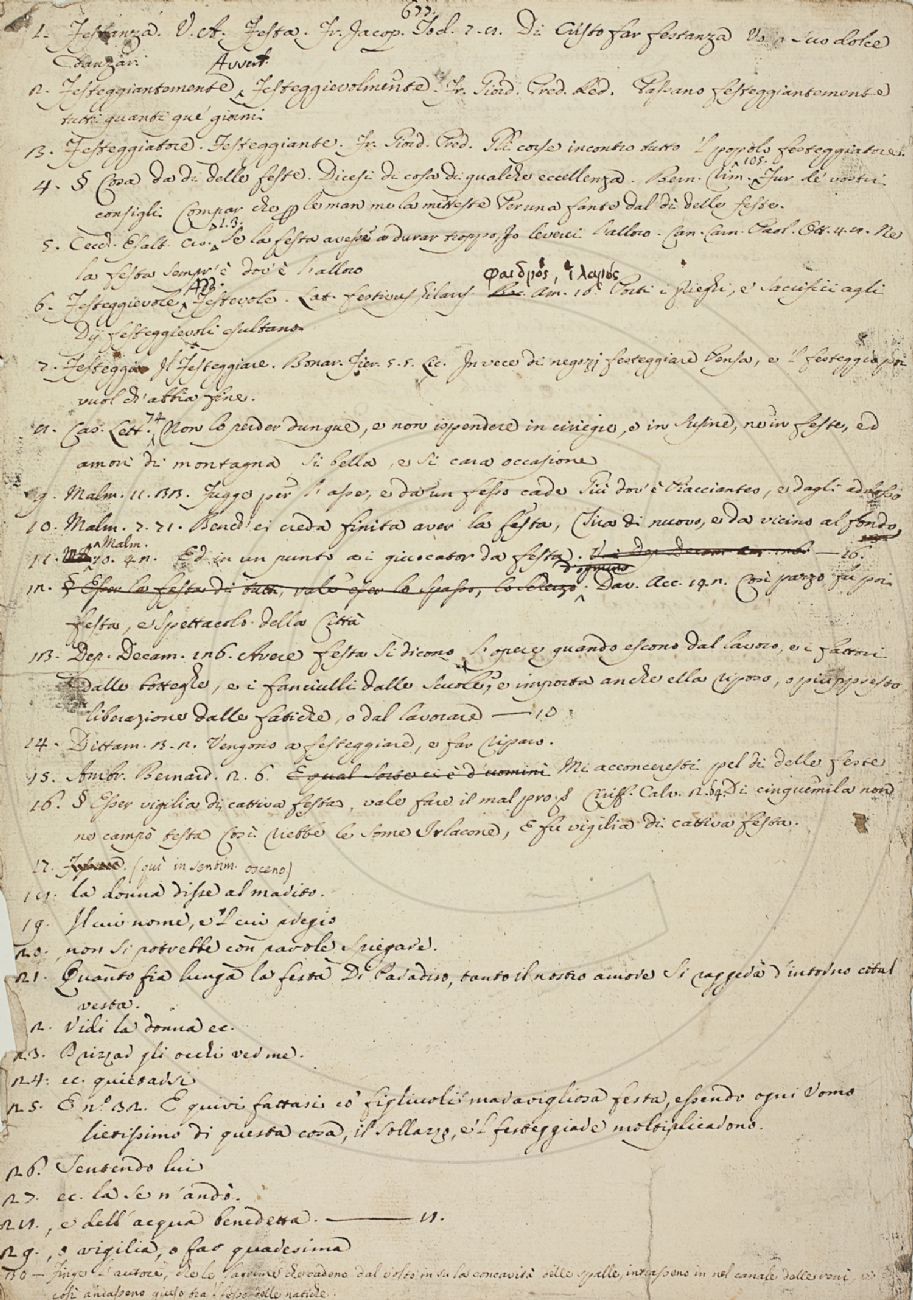 677.
1. Festanza. V. A. Festa. Fr. Jacop. Tod. 2. Di Cristo far festanza suo dolce
Danzari.
2. Festeggiantemente Avverb. Festeggievolmente. Fr. Giord. Pred. Red. Passano festeggiantemente
tutti quanti que' giorni.
3. Festeggiatore. Festeggiante. Fr. Giord. Pred. Gli corse incontro tutto 'l popolo festeggiatore.
4. § Cosa da dì delle feste. Dicesi di cosa di qualche eccellenza. Bern. rim. 105. Fur le vostri
consigli. Compar che per le man me la metteste Per una fante dal dì delle feste.
5. Cecch. Esalt. cr. 1.3. Se la festa avesse a durar troppo, Io leverei l'alloro. Can. Carn. Paol. Ott. 4. Ne
la festa sempr'è dov'è l'alloro
6. Festeggievole, Add. Festevole. Lat. festivus, hilaris φαιδρός, ἱλαρός Am. 16. Porti i prieghi, e sacrificii agli
Dij festeggievoli esultano.
7. Festeggio Il Festeggiare. Bonar. Fier. 5. 5. Lic. In vece di negozj festeggiare pensa, e 'l festeggio poi
vuol ch'abbia fine.
8. Cas. Lett. 74 Non la perder dunque, e non ispendere in ciriegie, e in susine, ne in feste, ed
amori di montagna sì bella, e sì cara occasione
9. Malm. 11. 33. Fugge per l'aspe, e da un fesso cade Più dov'è Piaccianteo, e dagli addosso
10. Malm. 7. 71. Bench'ei creda finita aver la festa, Tira di nuovo, e da vicino al fondo,
11. Malm. 10. 4. Ed in un punto a i giuocator da festa. 16.
12. § Esser la festa di tutti, vale esser lo spasso, lo scherzo d'ognuno. Dav. Acc. 142. Così pazzo fu poi
festa, e spettacolo della Città
13. Dep. Decam. 126. Avere festa si dicono l'opere quando escono dal lavoro, e i fattori
dalle botteghe, e i fanciulli dalle scuole, e importa anche ella riposo, o più presto
liberazione dalle fatiche, o dal lavorare — 10
14. Dittam. 3. 2. Vengono a festeggiare, e far riparo.
15. Ambr. Bernard. 2. 6. E qual sorte ci è d'uomini Mi acconceresti pel dì delle feste
16. § Esser vigilia di cattiva festa, vale fare il mal pro. § Ciriff. Calv. 2. 64. Di cinquemila non
ne campò testa Così rebbe le some Irlacone, E fu vigilia di cattiva festa.
17. (quì in sentim. osceno)
18. la donna disse al marito.
19. Il cui nome, e 'l cui pregio
20. non si potrebbe con parole spiegare.
21. Quanto fia lunga la festa Di Paradiso, tanto il nostro amore Si raggerà d'intorno cotal
vesta.
22. Vidi la donna ec.
23. Drizzar gli occhi ver me.
24. ec. quietarsi
25. E n.° 32. E quivi fattasi co' figliuoli maravigliosa festa, essendo ogni Uomo
lietissimo di questa cosa, il sollazzo, e 'l festeggiare moltiplicarono.
26. Sentendo lui
27. ec. la se n'andò.
28. , e dell'acqua benedetta. — 11.
29. , o vigilia, o far quaresima
30 — Finge l'autore, che le lagrime che cadono dal volto in su la concavità delle spalle, intrassono in nel canale delle reni, e
così andassono giuso tra i fessi delle natiche.